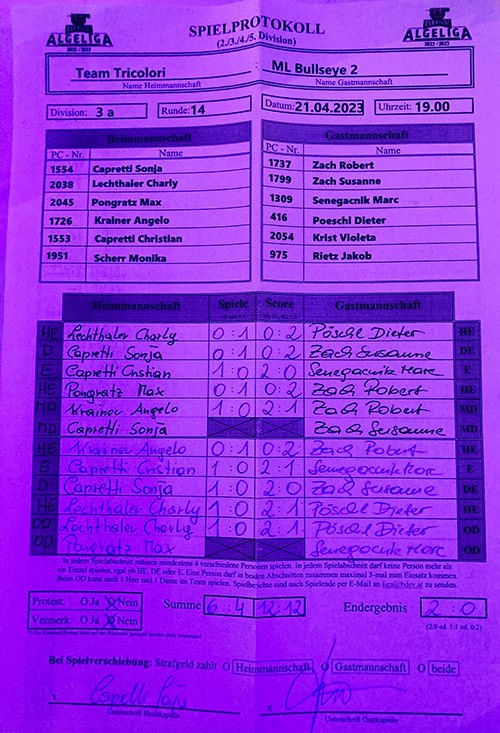 ALGELIGA
2022 / 2023
SPIELPROTOKOLL
(2./3./4./5. Division)
ALGELIGA
2022 / 2023
Team Tricolori
Name Heimmannschaft
ML Bullseye 2
Name Gastmannschaft
Division: 3 a Runde: 14 Datum: 21.04.2023 Uhrzeit: 19.00
Heimmannschaft
PC - Nr. Name
1554 Capretti Sonja
2038 Lechthaler Charly
2045 Pongratz Max
1726 Krainer Angelo
1553 Capretti Christian
1951 Scherr Monika
Gastmannschaft
PC - Nr. Name
1737 Zach Robert
1799 Zach Susanne
1309 Senegacnik Marc
416 Poeschl Dieter
2054 Krist Violeta
975 Rietz Jakob
Heimmannschaft Spiele Score Gastmannschaft
HE Lechthaler Charly 0:1 0:2 Pöschl Dieter HE
D Capretti Sonja 0:1 0:2 Zach Susanne DE
E Capretti Cristian 1:0 2:0 Senegacnik Marc E
HE Pongratz Max 0:1 0:2 Zach Robert HE
MD Krainer Angelo 1:0 2:1 Zach Robert MD
MD Capretti Sonja Zach Susanne MD
HE Krainer Angelo 0:1 0:2 Zach Robert HE
E Capretti Cristian 1:0 2:1 Senegacnik Marc E
D Capretti Sonja 1:0 2:0 Zach Susanne DE
HE Lechthaler Charly 1:0 2:1 Pöschl Dieter HE
OD Lechthaler Charly 1:0 2:1 Pöschl Dieter OD
OD Pongratz Max Senegacnik Marc OD
In jedem Spielabschnitt müssen mindestens 4 verschiedene Personen spielen. In jedem Spielabschnitt darf keine Person mehr als
ein Einzel spielen, egal ob HE, DE oder E. Eine Person darf in beiden Abschnitten zusammen maximal 3-mal zum Einsatz kommen.
Beim OD kann auch 1 Herr und 1 Dame im Team spielen. Spielberichte sind nach Spielende per E-Mail an
Protest: O Ja O Nein
Vermerk: O Ja O Nein
Summe 6:4 12:12 Endergebnis 2:0
(2:0 od. 1:1 od. 0:2)
Bei Spielverschiebung: Strafgeld zahlt O Heimmannschaft O Gastmannschaft O beide
x
Unterschrift Heimkapitän
x
Unterschrift Gastkapitän